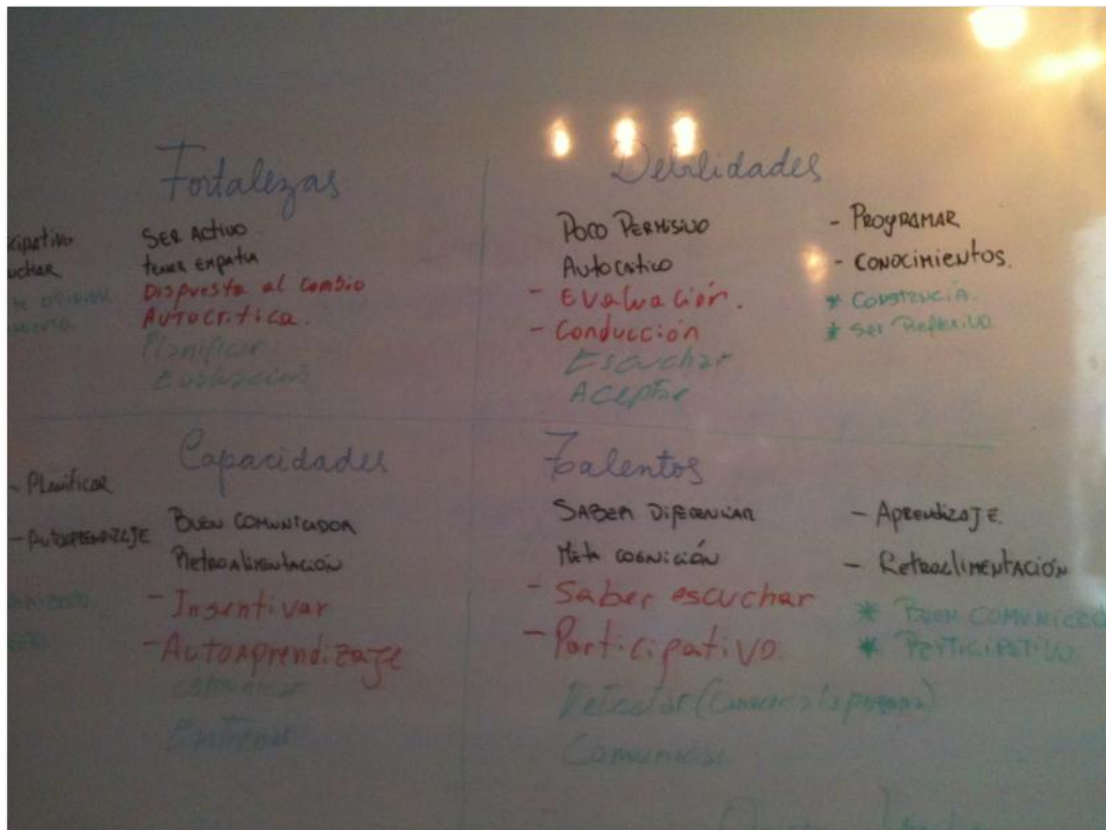 Fortalezas
SER ACTIVO
tener empatia
Dispuesta al cambio
AUTOCRITICA.
Planificar
Evaluación
Debilidades
POCO PERMISIVO
AUTOCRITICO
- Evaluación.
- Conducción
Escuchar
Aceptar
- PROGRAMAR
- CONOCIMIENTOS.
* CONSTANCIA.
* SER REFLEXIVO.
- PLANIFICAR
- AUTOAPRENDIZAJE
Capacidades
BUEN COMUNICADOR
RetroALIMENTACIÓN
- Insentivar
- AUTOAprendizaje
comunicar
Entrenar
Talentos
SABER DIFERENCIAR
META COGNICIÓN
- Saber escuchar
- Participativo.
Detectar (Conocer a la persona)
Comunicar
- APRENDIZAJE.
- RETROALIMENTACIÓN
* BUEN COMUNICADO
* PARTICIPATIVO.